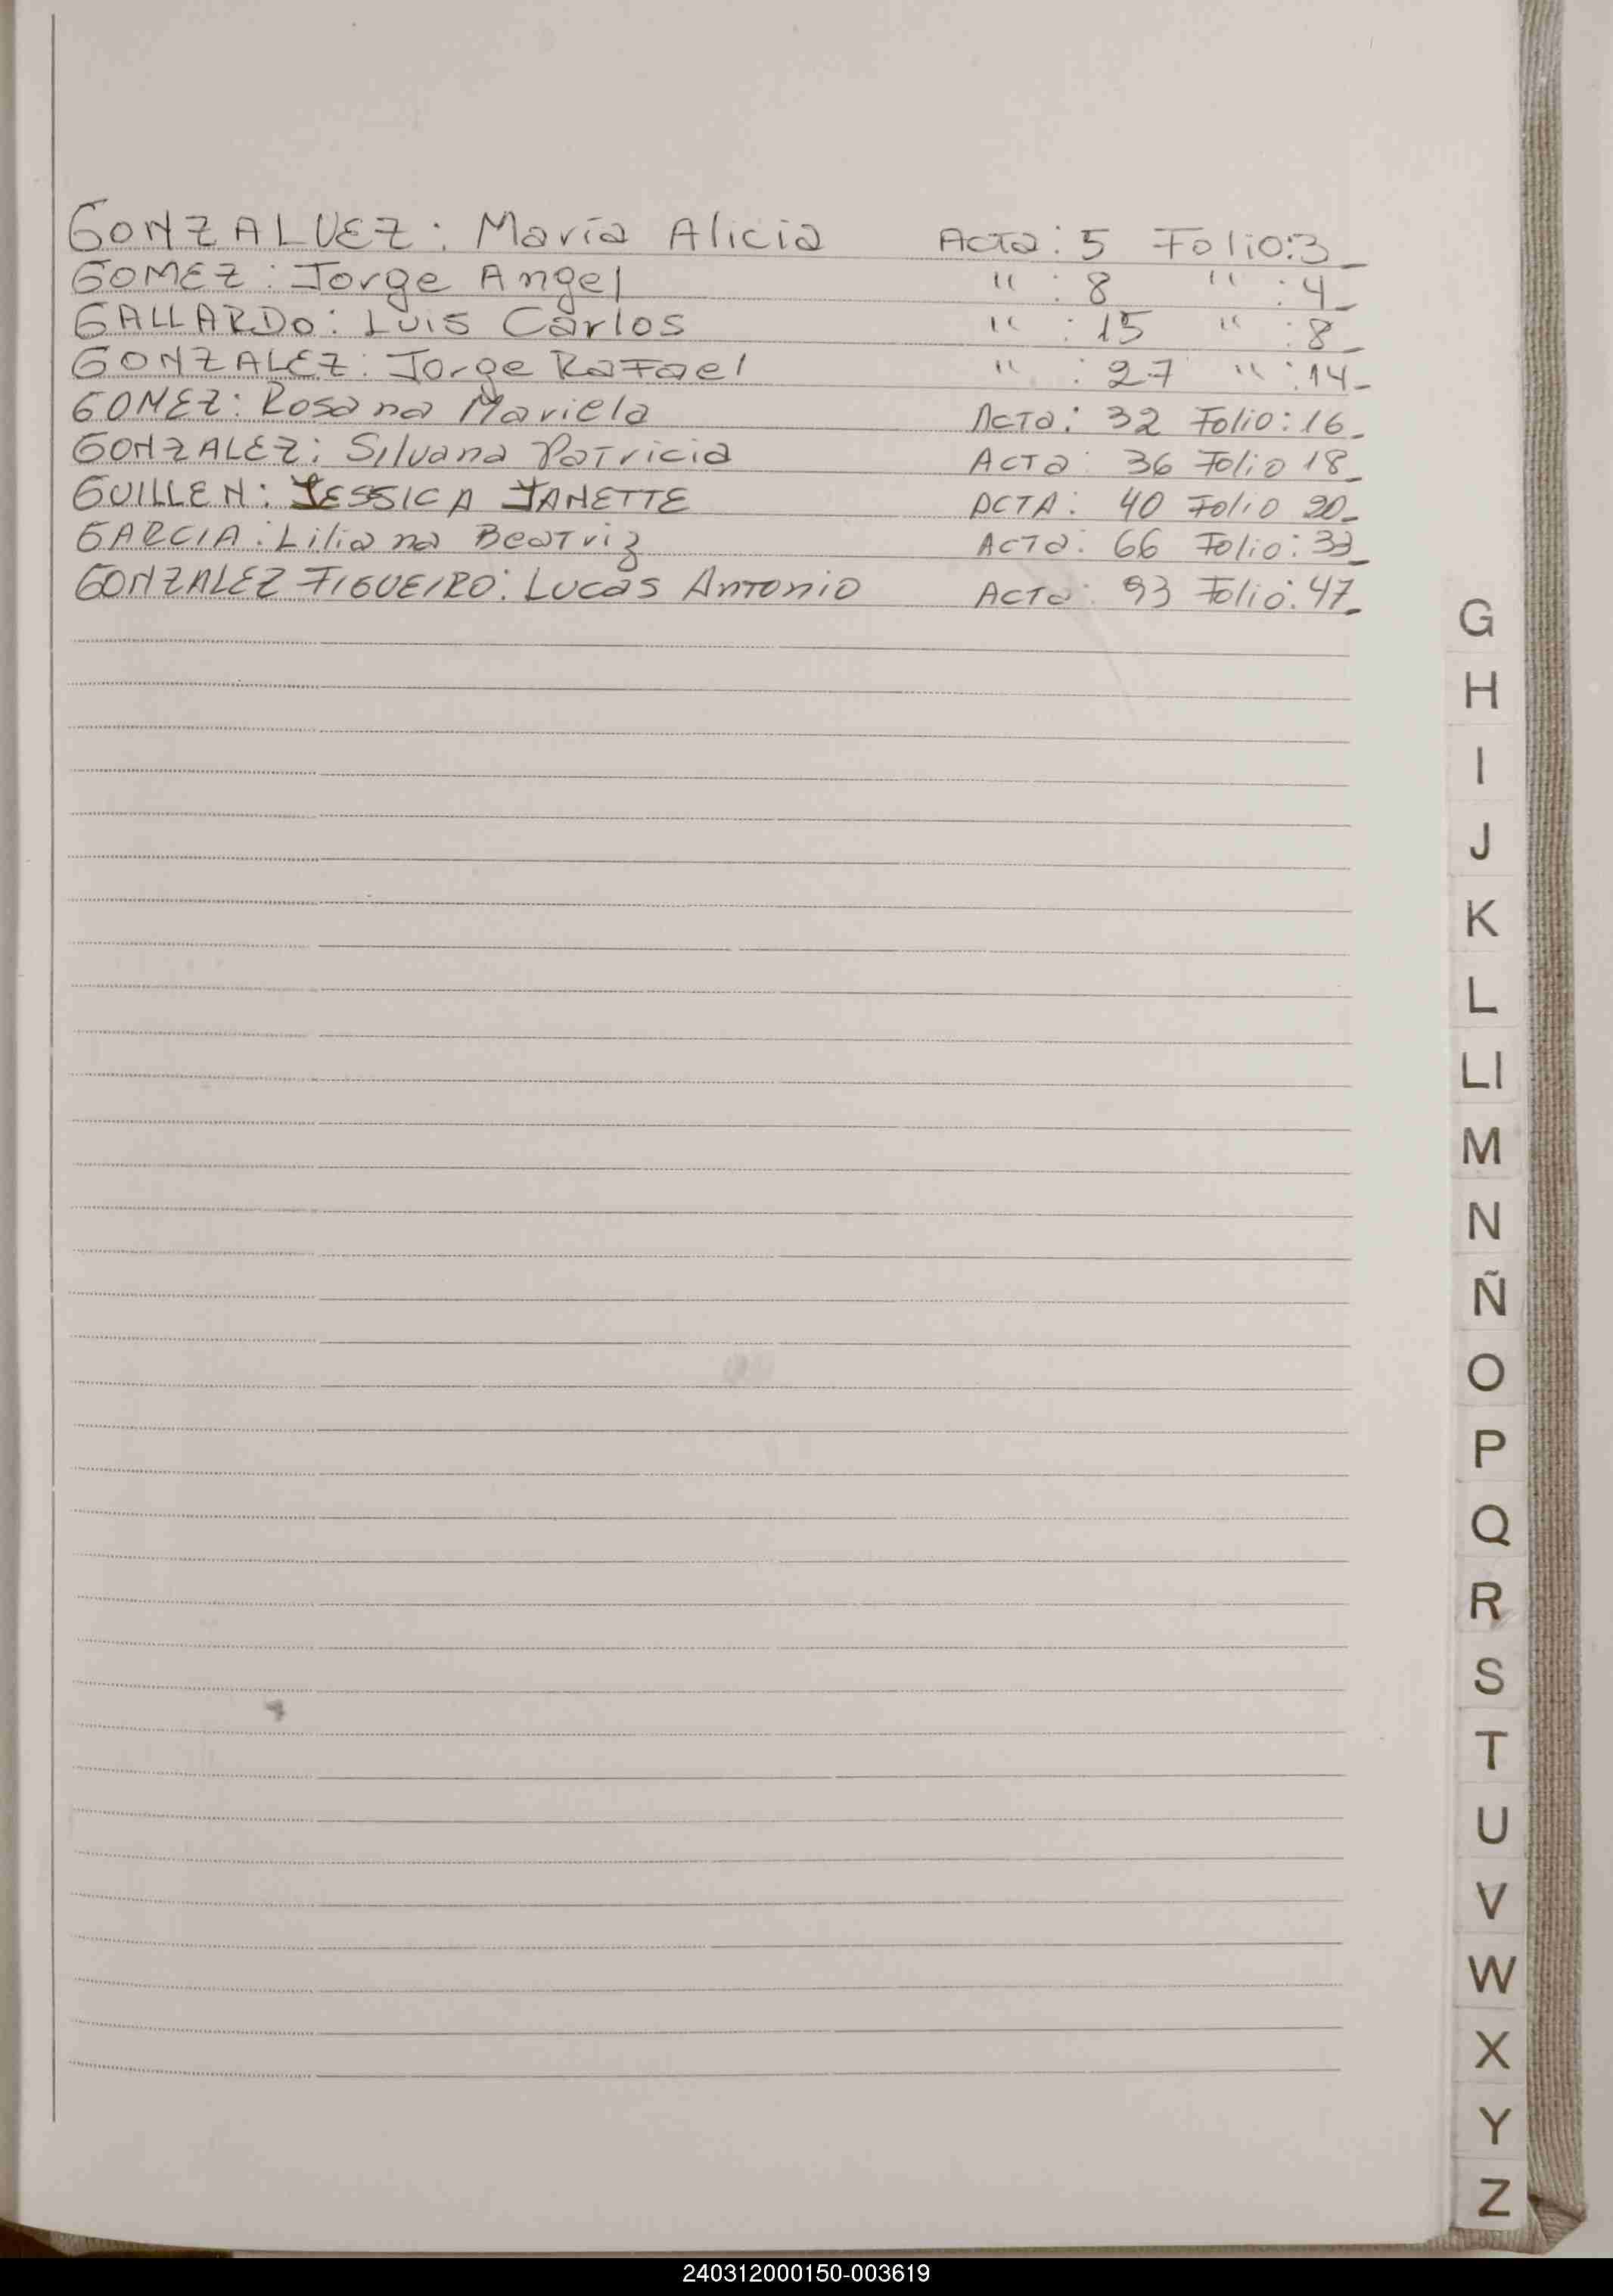 GONZALVEZ: María Alicia Acta: 5 Folio:3_
GOMEZ: Jorge Angel " : 8 " : 4_
GALLARDO: Luis Carlos " : 15 " : 8_
GONZALEZ: Jorge Rafael " : 27 " : 14_
GOMEZ: Rosana Mariela Acta: 32 Folio: 16_
GONZALEZ: Silvana Patricia Acta: 36 Folio 18_
GUILLEN: YESSICA YANETTE ACTA: 40 Folio 20_
GARCIA: Liliana Beatriz Acta: 66 Folio: 33_
GONZALEZ FIGUEIRO: Lucas Antonio Acta: 93 Folio: 47_
G
H
I
J
K
L
Ll
M
N
Ñ
O
P
Q
R
S
T
U
V
W
X
Y
Z
240312000150-003619